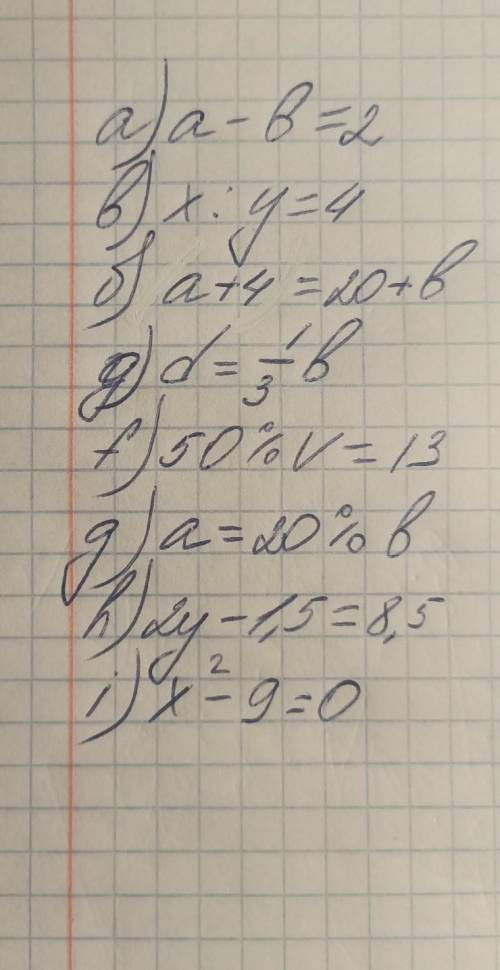 a) a - b = 2
b) x : y = 4
б) a + 4 = 20 + b
g) d = 1/3 b
f) 50% V = 13
g) a = 20% b
h) 2y - 1,5 = 8,5
i) x² - 9 = 0